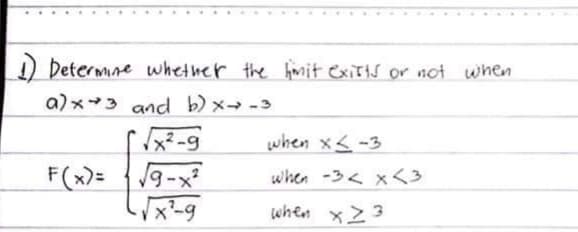 1) Determine whether the limit exists or not when
a) x→3 and b) x→ -3
√x²-9 when x≤ -3
F(x)= √9-x² when -3< x<3
√x²-9 when x≥3